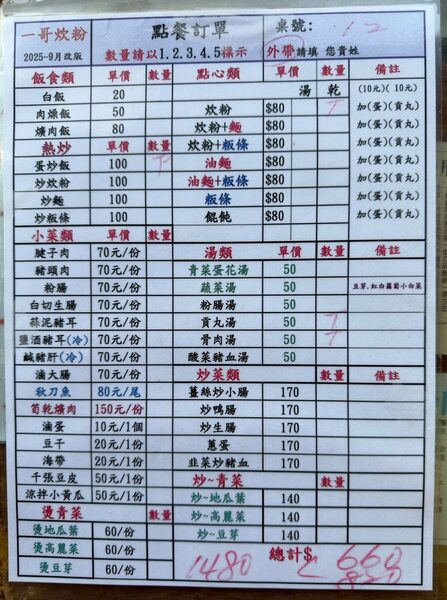 一哥炊粉 點餐訂單 桌號: 12
2025-9月改版 數量請以1.2.3.4.5標示 外帶請填 您貴姓
飯食類 單價 數量 點心類 單價 數量 備註
白飯 20 湯 乾 (10元)( 10元)
肉燥飯 50 炊粉 $80 加(蛋)(貢丸)
爌肉飯 80 炊粉+麵 $80 加(蛋)(貢丸)
熱炒 單價 數量 炊粉+粄條 $80 加(蛋)(貢丸)
蛋炒飯 100 油麵 $80 加(蛋)(貢丸)
炒炊粉 100 油麵+粄條 $80 加(蛋)(貢丸)
炒麵 100 粄條 $80 加(蛋)(貢丸)
炒粄條 100 餛飩 $80 加(蛋)(貢丸)
小菜類 單價 數量
腱子肉 70元/份 湯類 單價 數量 備註
豬頭肉 70元/份 青菜蛋花湯 50
粉腸 70元/份 蔬菜湯 50 豆芽.紅白蘿蔔小白菜
白切生腸 70元/份 粉腸湯 50
蒜泥豬耳 70元/份 貢丸湯 50
鹽酒豬耳(冷) 70元/份 骨肉湯 50
鹹豬肝(冷) 70元/份 酸菜豬血湯 50
滷大腸 70元/份 炒菜類 數量 備註
秋刀魚 80元/尾 薑絲炒小腸 170
筍乾爌肉 150元/份 炒鴨腸 170
滷蛋 10元/1個 炒生腸 170
豆干 20元/1份 蔥蛋 170
海帶 20元/1份 韭菜炒豬血 170
千張豆皮 50元/1份 炒~青菜 數量
涼拌小黃瓜 50元/1份 炒~地瓜葉 140
燙青菜 數量 炒~高麗菜 140
燙地瓜葉 60/份 炒~豆芽 140
燙高麗菜 60/份 總計$ 660
燙豆芽 60/份 1480